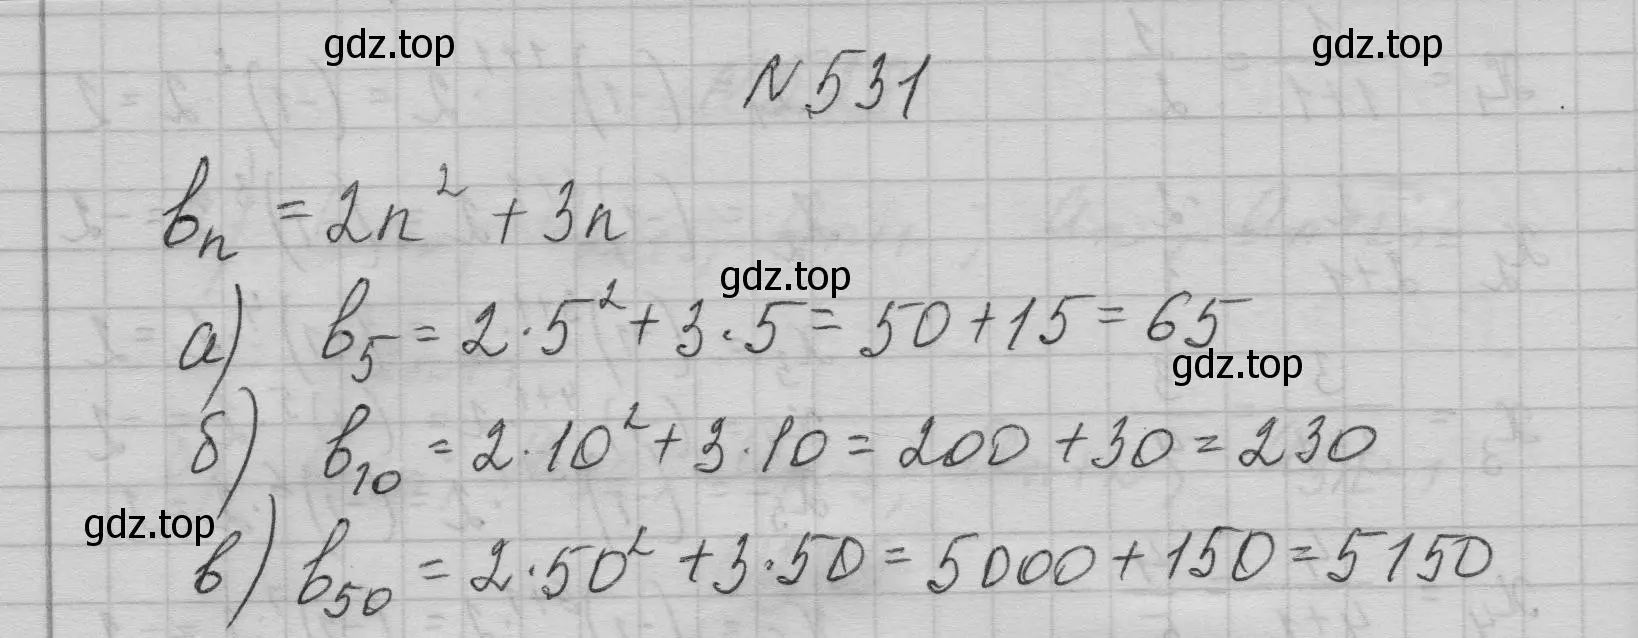 gdz.top gdz.top
N 531
bₙ = 2n² + 3n
gdz.top
а) b₅ = 2·5² + 3·5 = 50 + 15 = 65
gdz.top
б) b₁₀ = 2·10² + 3·10 = 200 + 30 = 230
gdz.top
в) b₅₀ = 2·50² + 3·50 = 5000 + 150 = 5150